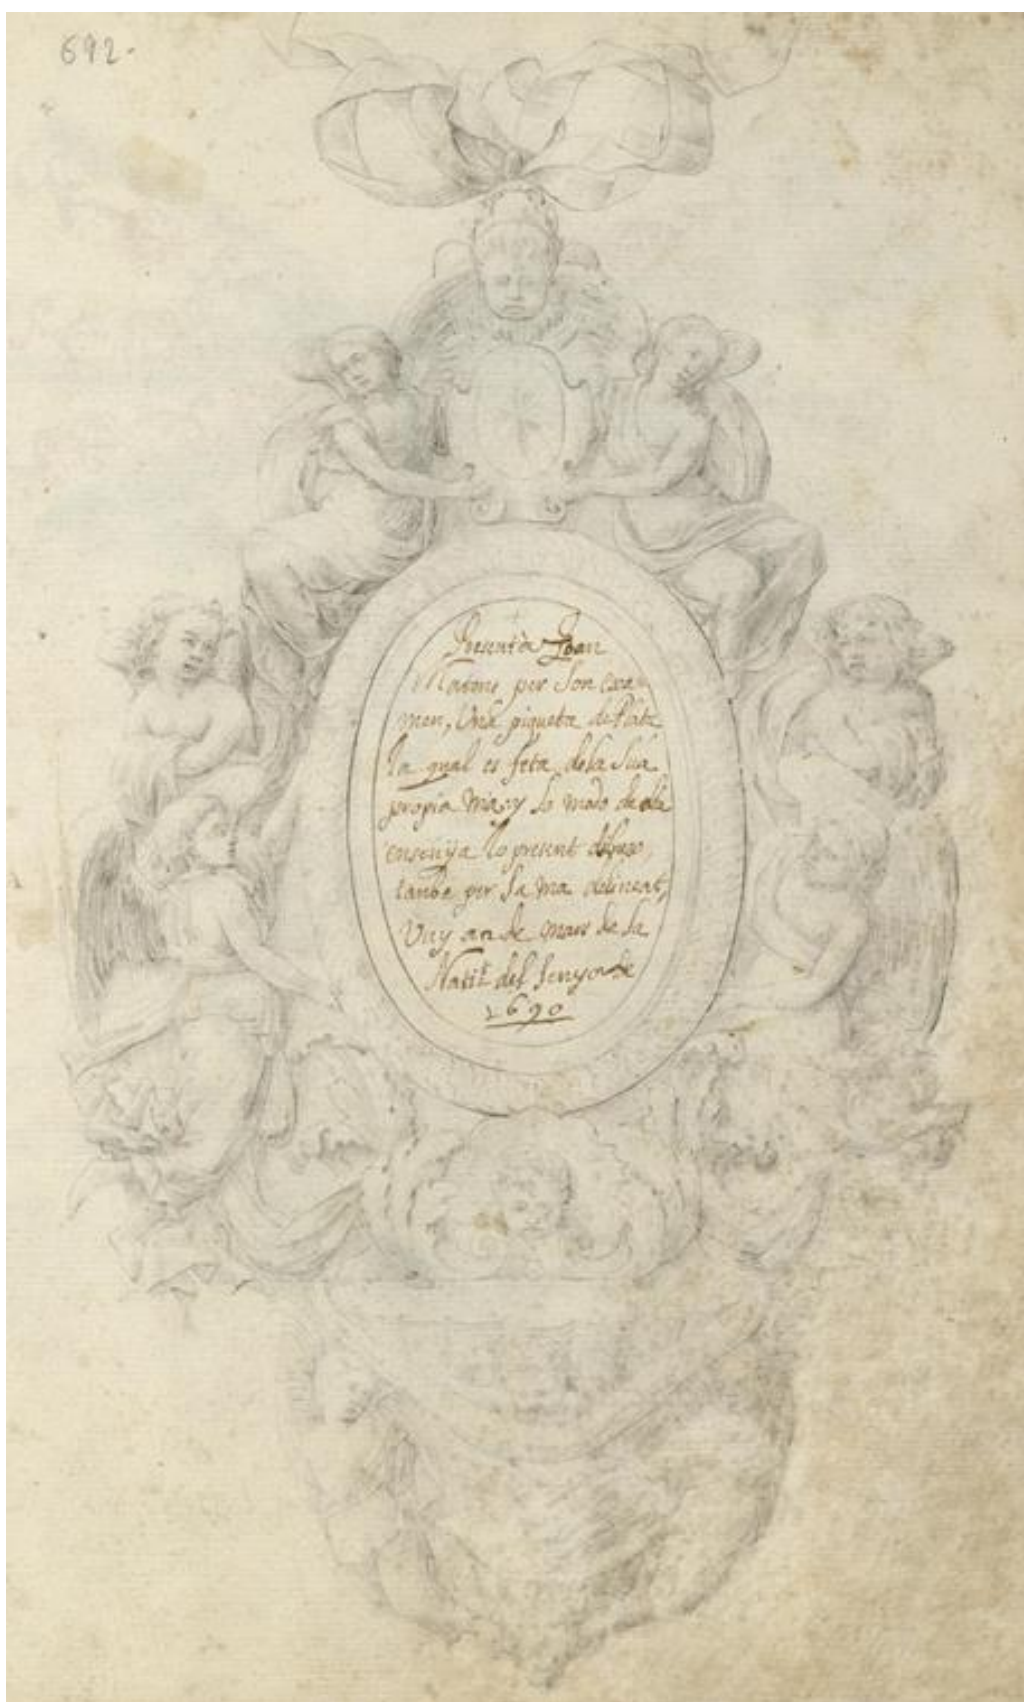 692.
Presentà Joan
Matons per son exa-
men, Una piqueta de Plata
la qual es feta de la Sua
propia Mà, y lo modo de
ensenya lo present dibuxo,
tanbe per sa ma delineat,
Vuy als de mars de la
Natit. del Senyor de
1690